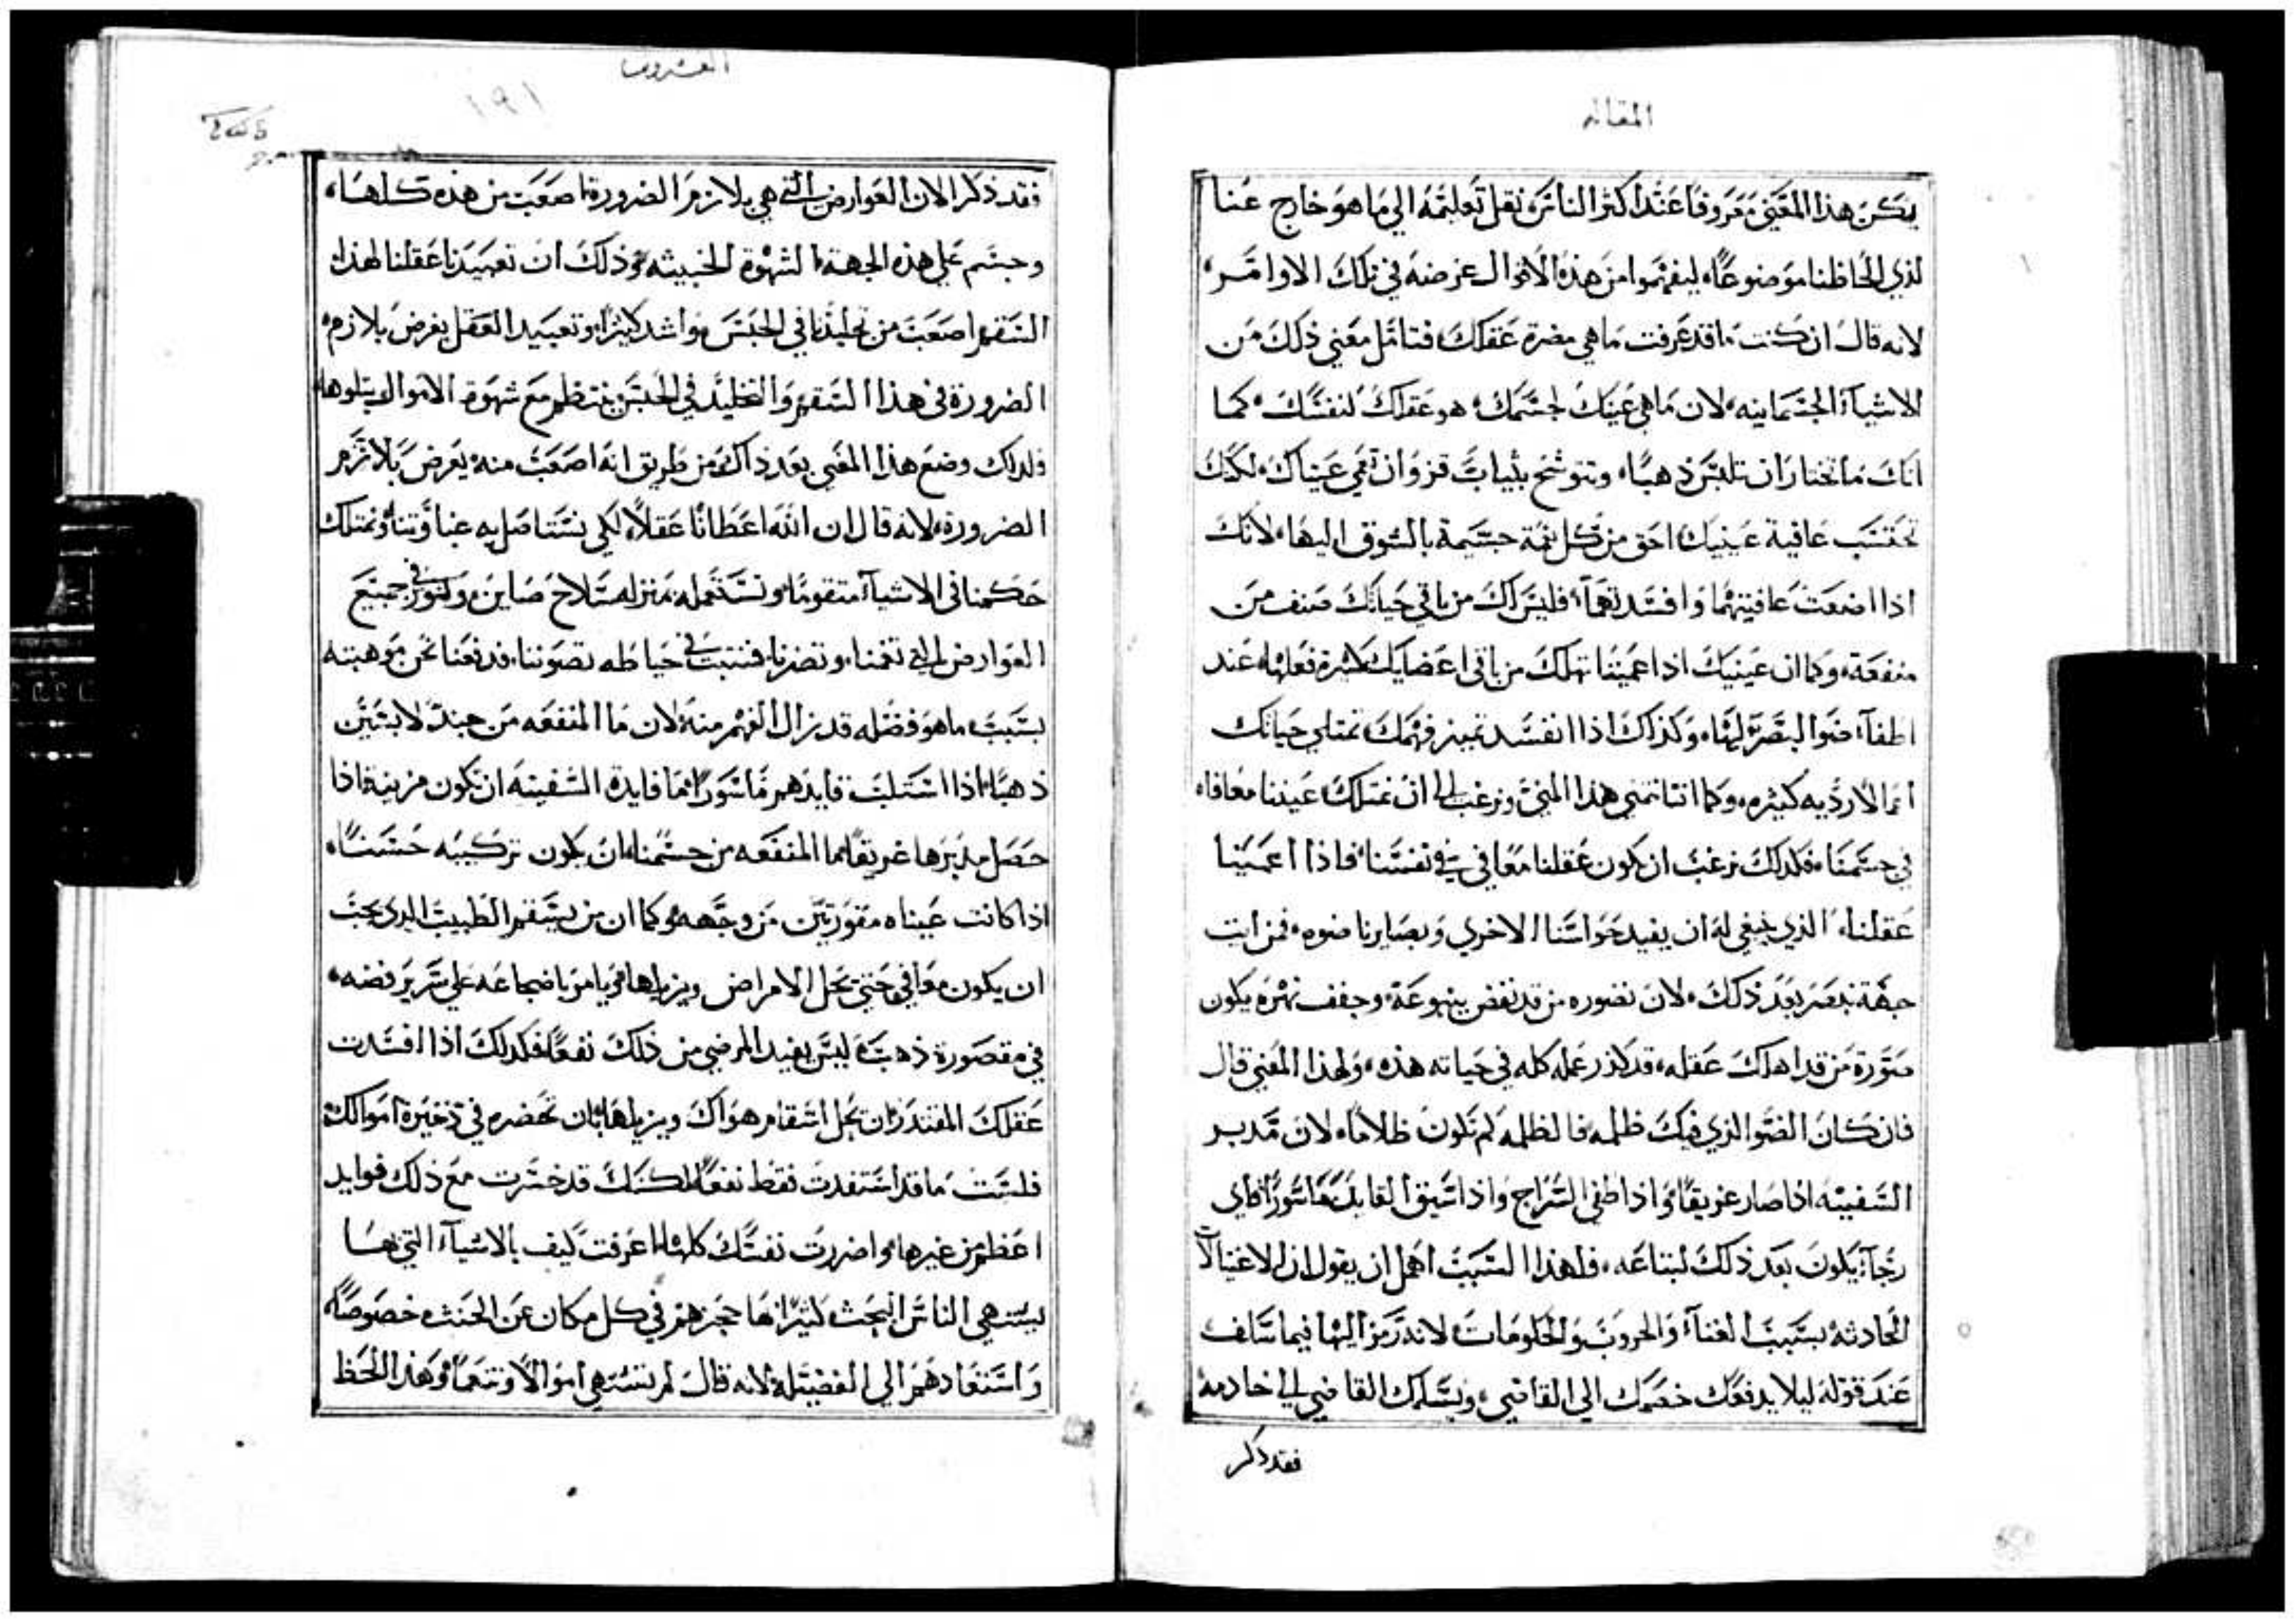 المقاله
يكن هذا المعني معروفا عند اكثر الناس نقل تعليمه الي ما هو خارج عنا
لذي الحاظنا موضوعا، ليفهموا من هذه الاقوال غرضه في تلك الاوامر،
لانه قال ان كنت ما قد عرفت ما هي مضرة عقلك فتامل معني ذلك من
الاشيآء الجسمانيه، لان ما هي عينك لجسمك، هو عقلك لنفسك، كما
انك ما تختار ان تلبس ذهبا، وتتوشح بثياب قز وان تعمي عيناك، لكنك
تحتسب عافية عينيك احق من كل نعمة جسيمة بالشوق اليها، لانك
اذا اضعت عافيتهما وافسدتهما، فليس لك من باقي حياتك صنف من
منفعة، وكما ان عينيك اذا عميتا تهلك من باقي اعضايك كثيرة فعلها، عند
اطفآء ضو البصر لها، وكذلك اذا انفسد تميز فهمك تمتلي حياتك
انما لارديه كثيره، وكما اننا نتمني هذا المني ونرغب الي ان نمتلك عيننا معافاه
في جسمنا، فكذلك نرغب ان يكون عقلنا معافي في نفسنا، فاذا اعمينا
عقلنا، الذي ينبغي له ان يفيد حواسنا الاخري وبصايرنا ضوه، فمن ايت
جهة نبصر بعد ذلك، لان نصوره من قد نغض ينبوعة، وجفف نهره يكون
صورة من قد اهلك عقله، قد كدر عمله كله في حياته هذه، ولهذا المعني قال
فان كان الضو الذي فيك ظلمه فالظلمه كم تكون ظلاما، لان مدبر
السفينه اذا صار غريقا، واذا طفي السراج واذا سيق القايد ماسورا فاي
رجآء يكون بعد ذلك لتباعه، فلهذا السبب اهمل ان يقول ان الاغتيالات
الحادثه بسبب الغنآء والحروب والحكومات، لانه رمز اليها فيما سلف
عند قوله ليلا يدفعك خصمك الي القاضي، ويسلمك القاضي الي خادمه
فقد ذكر
العشرون
١٩١
فقد ذكر الان العوارض التي هي بلازم الضرورة اصعب من هذه كلها،
وحسم علي هذه الجهة الشهوة الخبيثه، وذلك ان تعبيدنا عقلنا لهذا
السقم اصعب من تخليدنا في الحبس واشد كثيرا، وتعبيد العقل يعرض بلازم
الضرورة في هذا السقم والتخليد في الحبس ينتظم مع شهوة الاموال ويتلوها
فلذلك وضع هذا المعني بعد ذاك من طريق انه اصعب منه يعرض بلازم
الضرورة، لانه قال ان الله اعطانا عقلا، لكي نستاصل به غباوتنا، ونمتلك
حكمنا في الاشيآء متقوما، ونستعمله بمنزله سلاح صاين، وكنور في جميع
العوارض التي تغمنا، وتضرنا، فنتبت في حياطه تصوننا، فدفعنا نحن موهبته
بسبب ما هو فضله قد يزال الفهم منه، لان ما المنفعه من جند لابسين
ذهبا، اذا استلب قايدهم ماسورا، ما فايدة السفينه ان تكون مزينة، اذا
حصل مدبرها غريقا، ما المنفعه من جسمنا، ان يكون تركيبه حسنا،
اذا كانت عيناه مقورتين من وجهه، وكما ان من يسقم الطبيب الذي يجب
ان يكون معافي، حتي يحل الامراض ويزيلها، ويامر باضجاعه علي سرير فضه،
في مقصورة ذهب، ليس يفيد المرضي من ذلك نفعا، فكذلك اذا افسدت
عقلك المقتدر، ان يحل اسقام هواك ويزيلها، بان تحضره في ذخيرة اموالك
فلست ما قد استفدت فقط نفعا، لكنك قد خسرت مع ذلك فوايد
اعظم من غيرها، واضررت نفسك كلها، اعرفت كيف بالاشيآء التي بها
يشتهي الناس الخبث كثيرا، بها حجزهم في كل مكان عن الخبث، خصوصا،
واستعادهم الي الفضيله، لانه قال لم تشتهي اموالا، وتنعما، وهذا الحظ